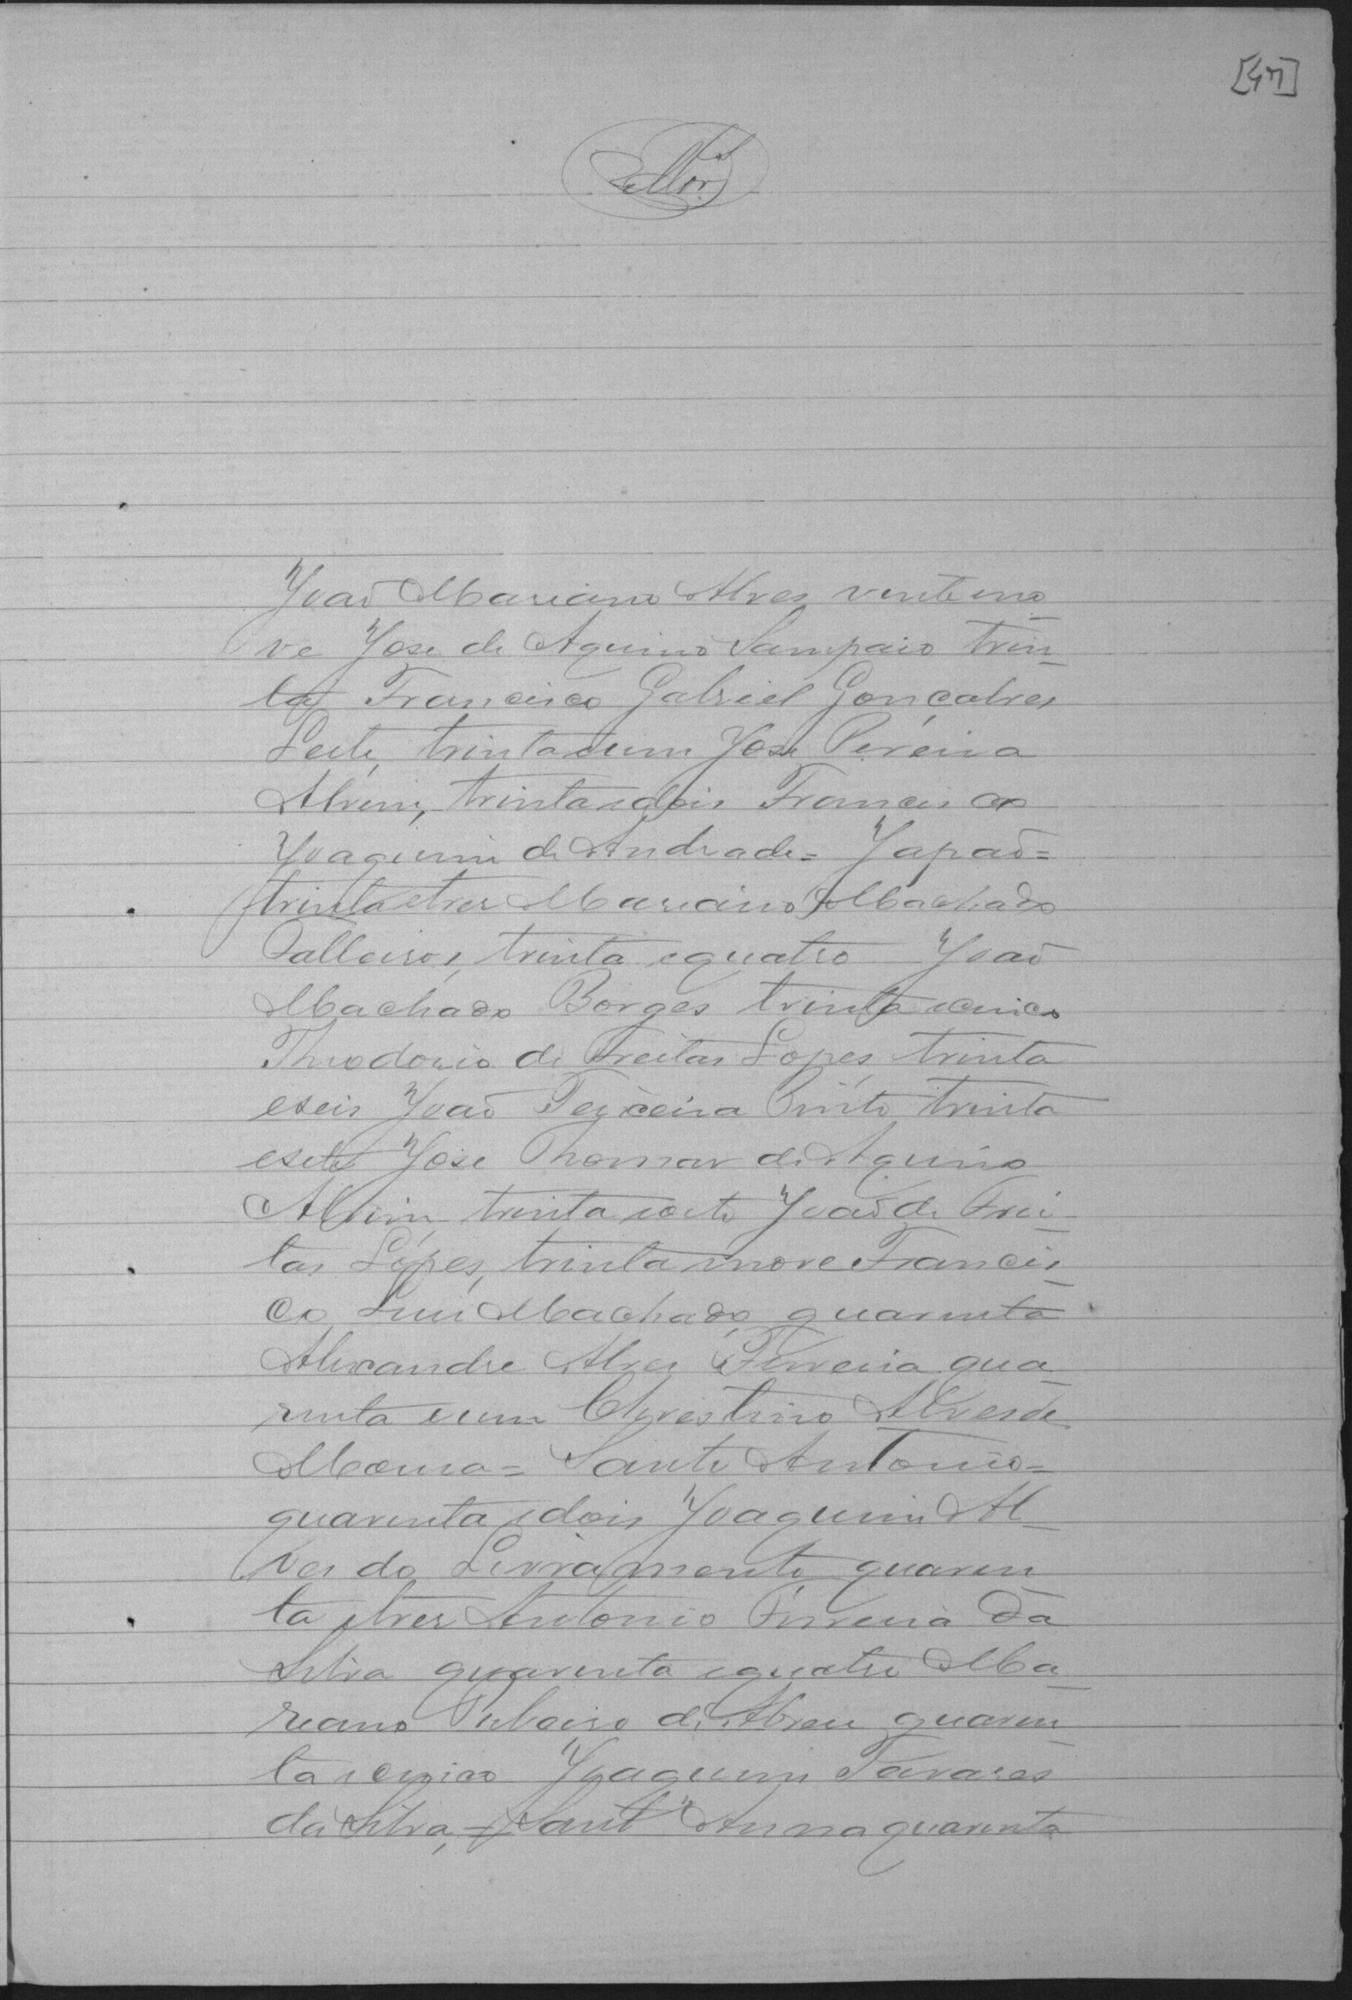 [47]
João Mariano Alves vinte no
ve Jose de Aquino Sampaio trin
ta Francisco Gabriel Gonçalves
Leite, trinta e um Jose Pereira
Alvim, trinta e dois Francisco
Joaquim de Andrade = Japaõ =
trinta e tres Mariano Machado
trinta e quatro João
Machado Borges trinta e cinco
Theodorio de Freitas Lopes, trinta
e seis João Teixeira Pinto trinta
e sete Jose Thomas de Aquino
Alvim, trinta e oito João de Frei
tas Lopes, trinta e nove Francis
co Luis Machado, quarenta
Alexandre Alves Ferreira qua
renta e um Alves de
Moura = Santo Antonio =
quarenta e dois Joaquim Al
ves do Livramento quaren
ta e tres Antonio Ferreira da
Silva quarenta e quatro Ma
riano de Abreu quaren
ta e cinco Joaquim Tavares
da Silva, = Sant'Anna quarenta